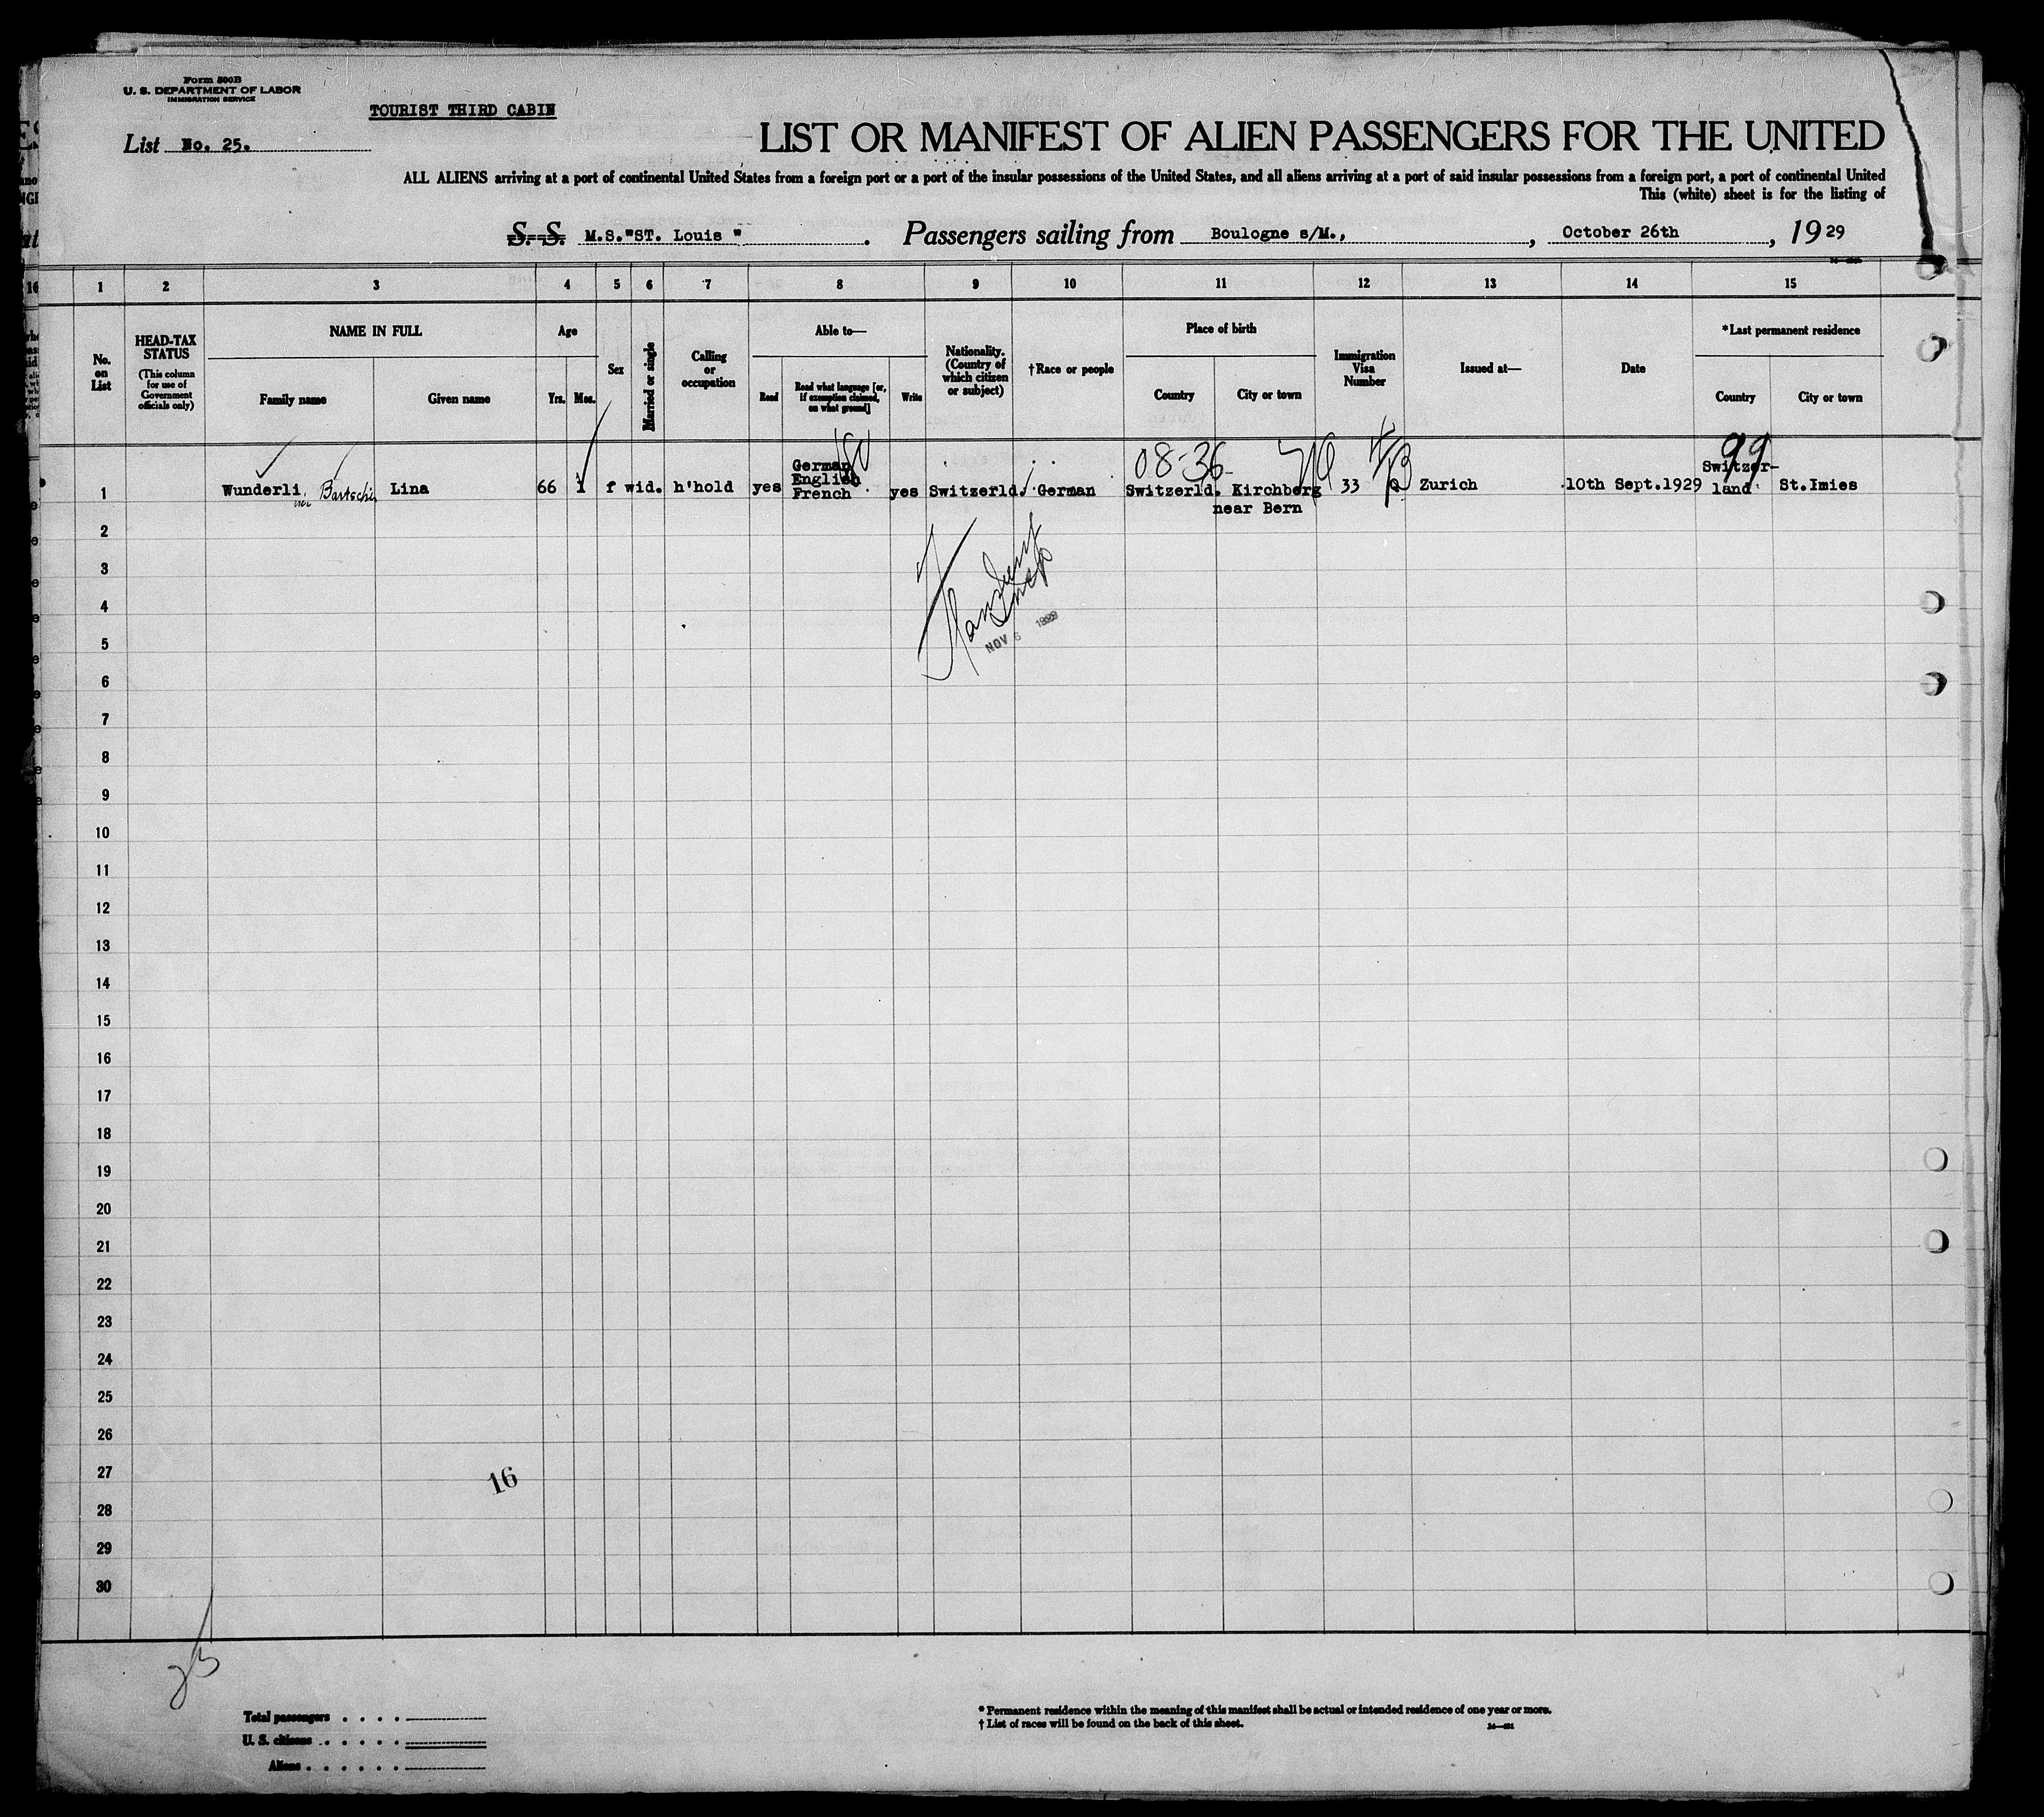 Form 500B
U. S. DEPARTMENT OF LABOR
IMMIGRATION SERVICE
TOURIST THIRD CABIN
List No. 25.
LIST OR MANIFEST OF ALIEN PASSENGERS FOR THE UNITED
ALL ALIENS arriving at a port of continental United States from a foreign port or a port of the insular possessions of the United States, and all aliens arriving at a port of said insular possessions from a foreign port, a port of continental United
This (white) sheet is for the listing of
S. S. M.S."ST. Louis " . Passengers sailing from Boulogne s/M., , October 26th , 19 29
1 2 3 4 5 6 7 8 9 10 11 12 13 14 15
No. on List
HEAD-TAX STATUS
(This column for use of Government officials only)
NAME IN FULL
Family name
Given name
Age
Yrs. Mos.
Sex
Married or single
Calling or occupation
Able to—
Read
Read what language [or, if exemption claimed, on what ground]
Write
Nationality. (Country of which citizen or subject)
†Race or people
Place of birth
Country
City or town
Immigration Visa Number
Issued at—
Date
*Last permanent residence
Country
City or town
08-36- 99
1 Wunderli Bartschi Lina 66 1 f wid. h'hold yes German English French yes Switzerld. German Switzerld. Kirchberg near Bern 33 Q Zurich 10th Sept.1929 Switzer-land St.Imies
2
3
4
5
NOV 6 1929
6
7
8
9
10
11
12
13
14
15
16
17
18
19
20
21
22
23
24
25
26
27
16
28
29
30
Total passengers . . . .
U. S. citizens . . . . . .
Aliens . . . . . .
* Permanent residence within the meaning of this manifest shall be actual or intended residence of one year or more.
† List of races will be found on the back of this sheet.